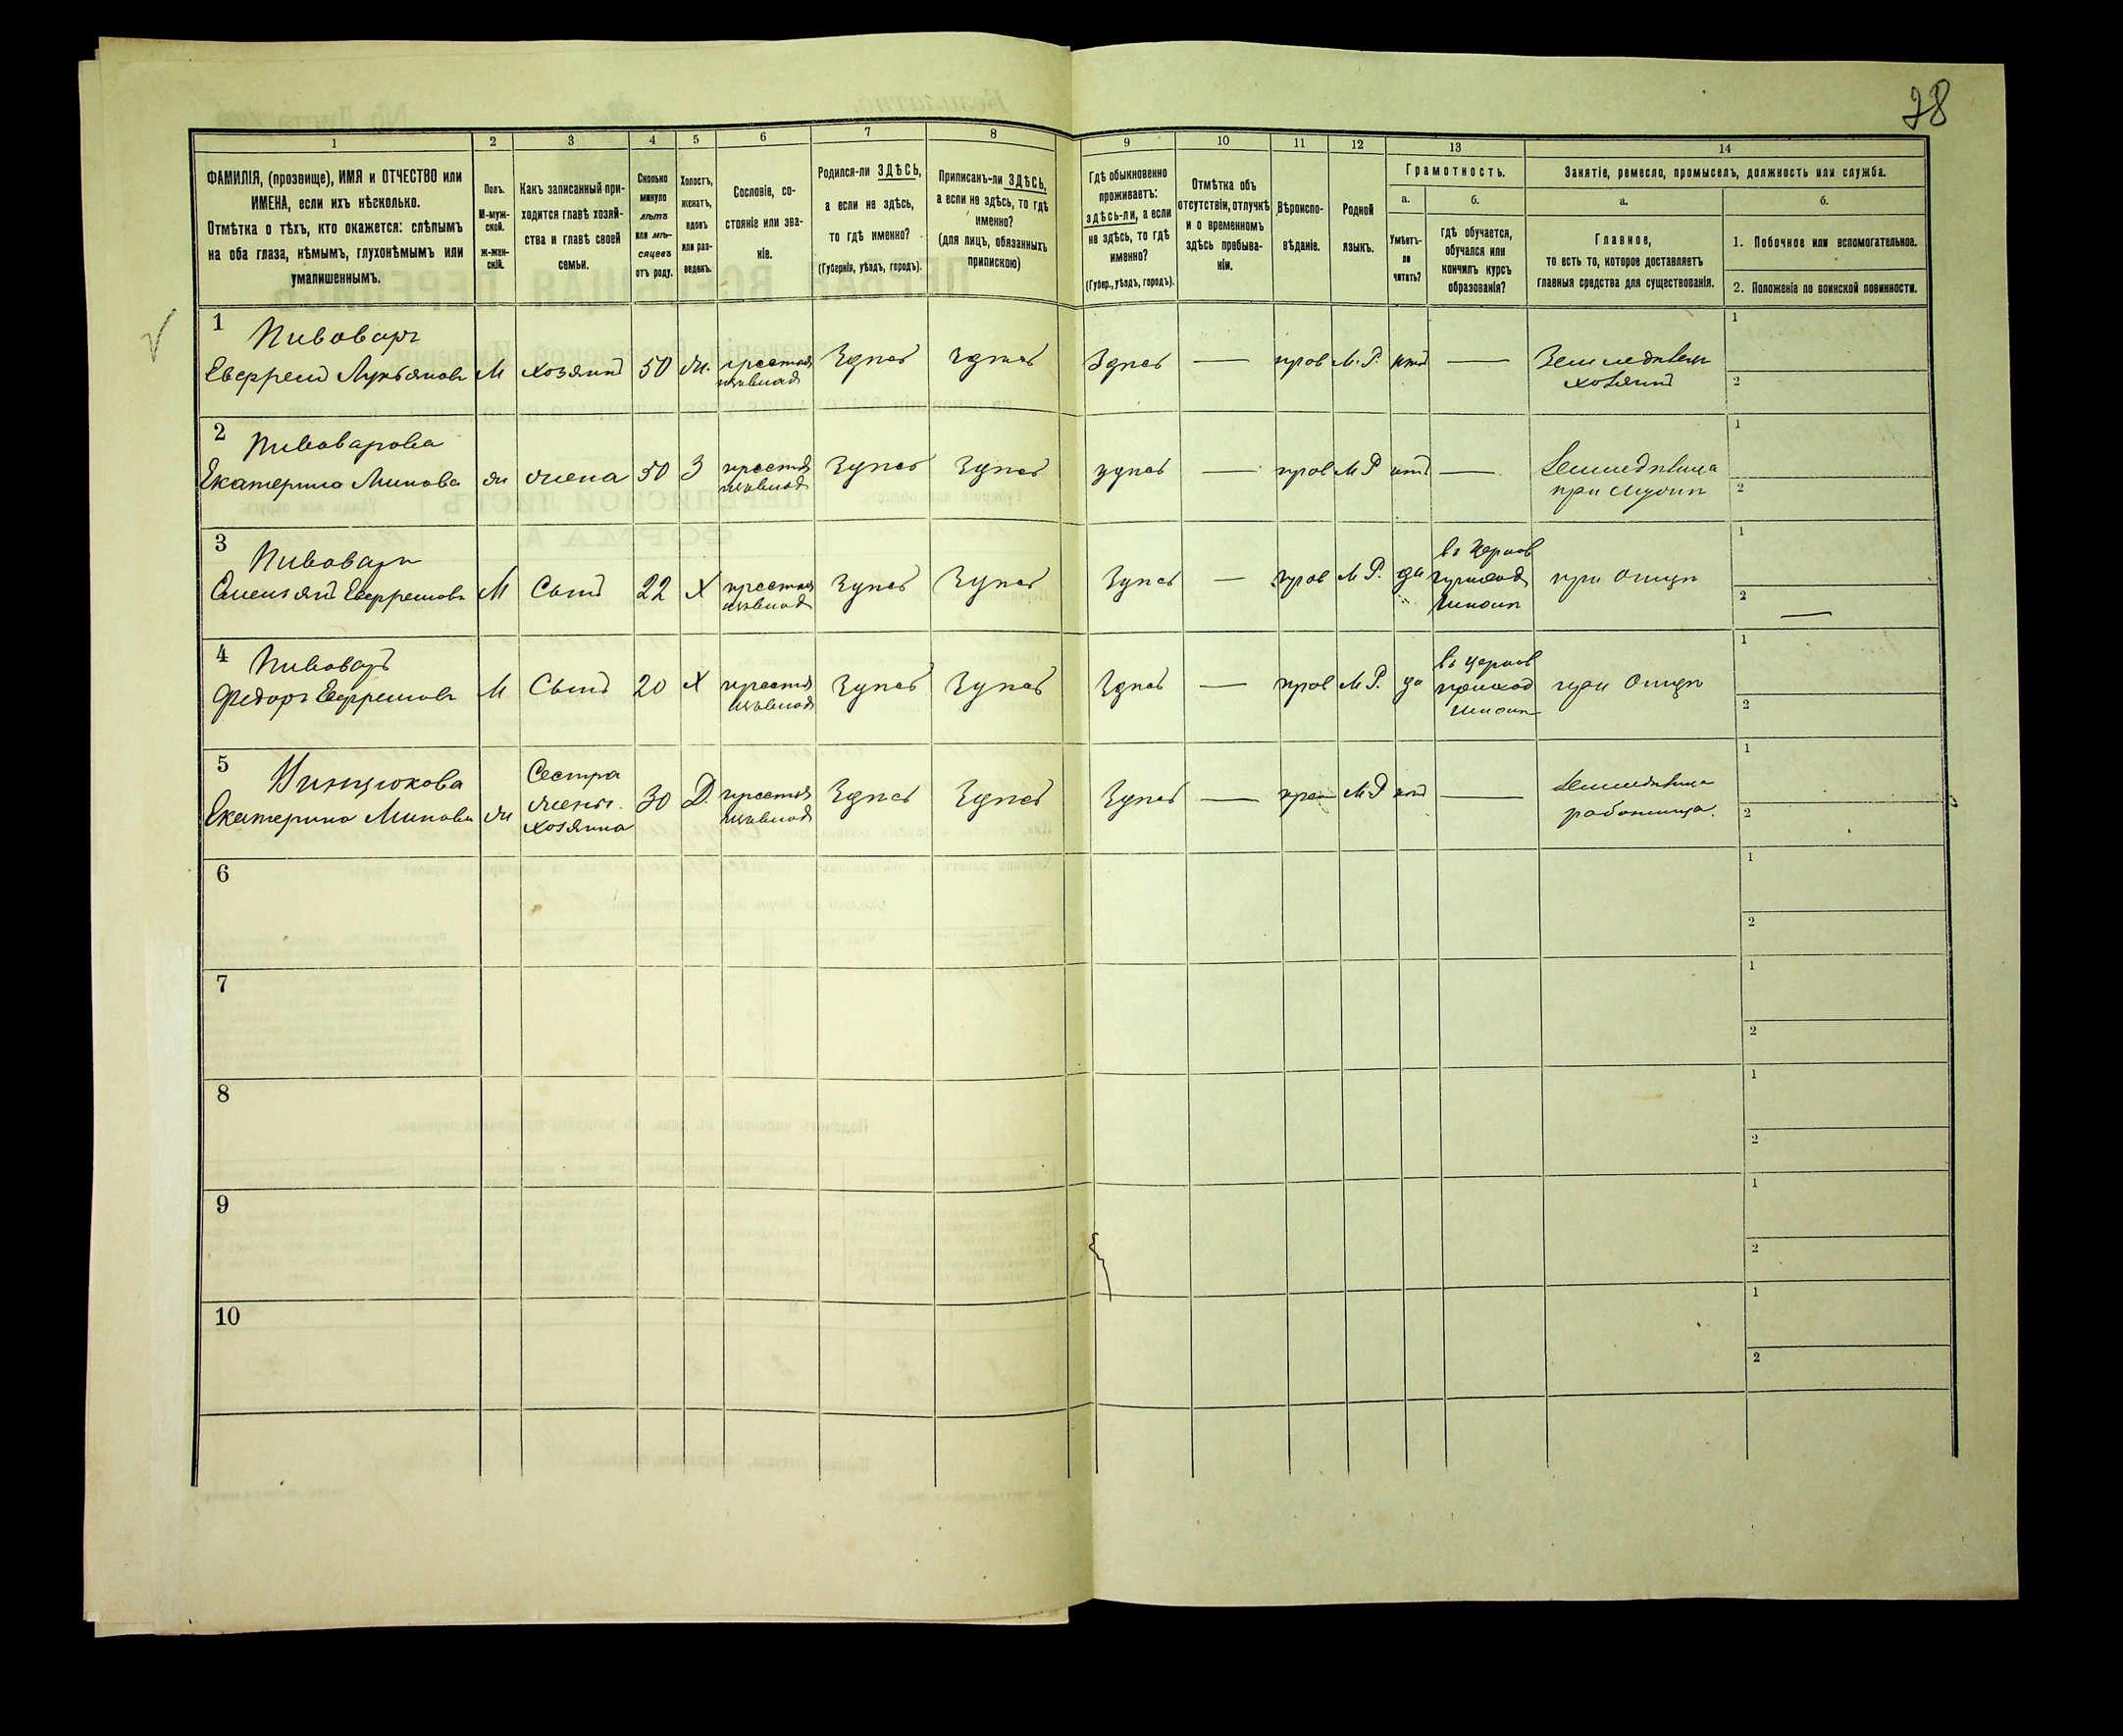 28
1
2
3
4
5
6
7
8
9
10
11
12
13
14
ФАМИЛІЯ, (прозвище), ИМЯ и ОТЧЕСТВО или
ИМЕНА, если ихъ нѣсколько.
Отмѣтка о тѣхъ, кто окажется: слѣпымъ
на оба глаза, нѣмымъ, глухонѣмымъ или
умалишеннымъ.
Полъ.
М-муж-
ской.
ж-жен-
скій.
Какъ записанный при-
ходится главѣ хозяй-
ства и главѣ своей
семьи.
Сколько
минуло
лѣтъ
или мѣ-
сяцевъ
отъ роду.
Холостъ,
женатъ,
вдовъ
или раз-
веденъ.
Сословіе, со-
стояніе или зва-
ніе.
Родился-ли ЗДѢСЬ,
а если не здѣсь,
то гдѣ именно?
(Губернія, уѣздъ, городъ).
Приписанъ-ли ЗДѢСЬ,
а если не здѣсь, то гдѣ
именно?
(для лицъ, обязанныхъ
припискою)
Гдѣ обыкновенно
проживаетъ:
здѣсь-ли, а если
не здѣсь, то гдѣ
именно?
(Губер., уѣздъ, городъ).
Отмѣтка объ
отсутствіи, отлучкѣ
и о временномъ
здѣсь пребыва-
ніи.
Вѣроиспо-
вѣданіе.
Родной
языкъ.
Грамотность.
а.
Умѣетъ-
ли
читать?
б.
гдѣ обучается,
обучался или
кончилъ курсъ
образованія?
Занятіе, ремесло, промыселъ, должность или служба.
а.
Главное,
то есть то, которое доставляетъ
главныя средства для существованія.
б.
1. Побочное или вспомогательное.
2. Положеніе по воинской повинности.
1
Пивоваръ
Евфремъ Лукьяновъ
М
хозяинъ
50
ж.
Здѣсь
Здѣсь
Здѣсь
—
прав
М. Р.
нѣтъ
—
Земледѣлецъ
хозяинъ
1
2
2
Пивоварова
Екатерина Минова
ж
жена
50
З
Здѣсь
Здѣсь
здѣсь
—
прав
М Р
нѣтъ
—
Земледѣлица
при мужѣ
1
2
3
Пивоваръ
Евфремовъ
М
Сынъ
22
Х
Здѣсь
Здѣсь
Здѣсь
—
прав
М Р.
да
въ Церков
приход
школѣ
при Отцѣ
1
2
—
4
Пивоваръ
Федоръ Евфремовъ
М
Сынъ
20
Х
Здѣсь
Здѣсь
Здѣсь
—
прав
М Р.
да
въ Церков
приход
школѣ
при Отцѣ
1
2
5
Екатерина Минова
ж
Сестра
жены
хозяина
30
Д.
Здѣсь
Здѣсь
Здѣсь
—
прав
М Р
нѣтъ
—
Земледѣлица
работница.
1
2
6
1
2
7
1
2
8
1
2
9
1
2
10
1
2